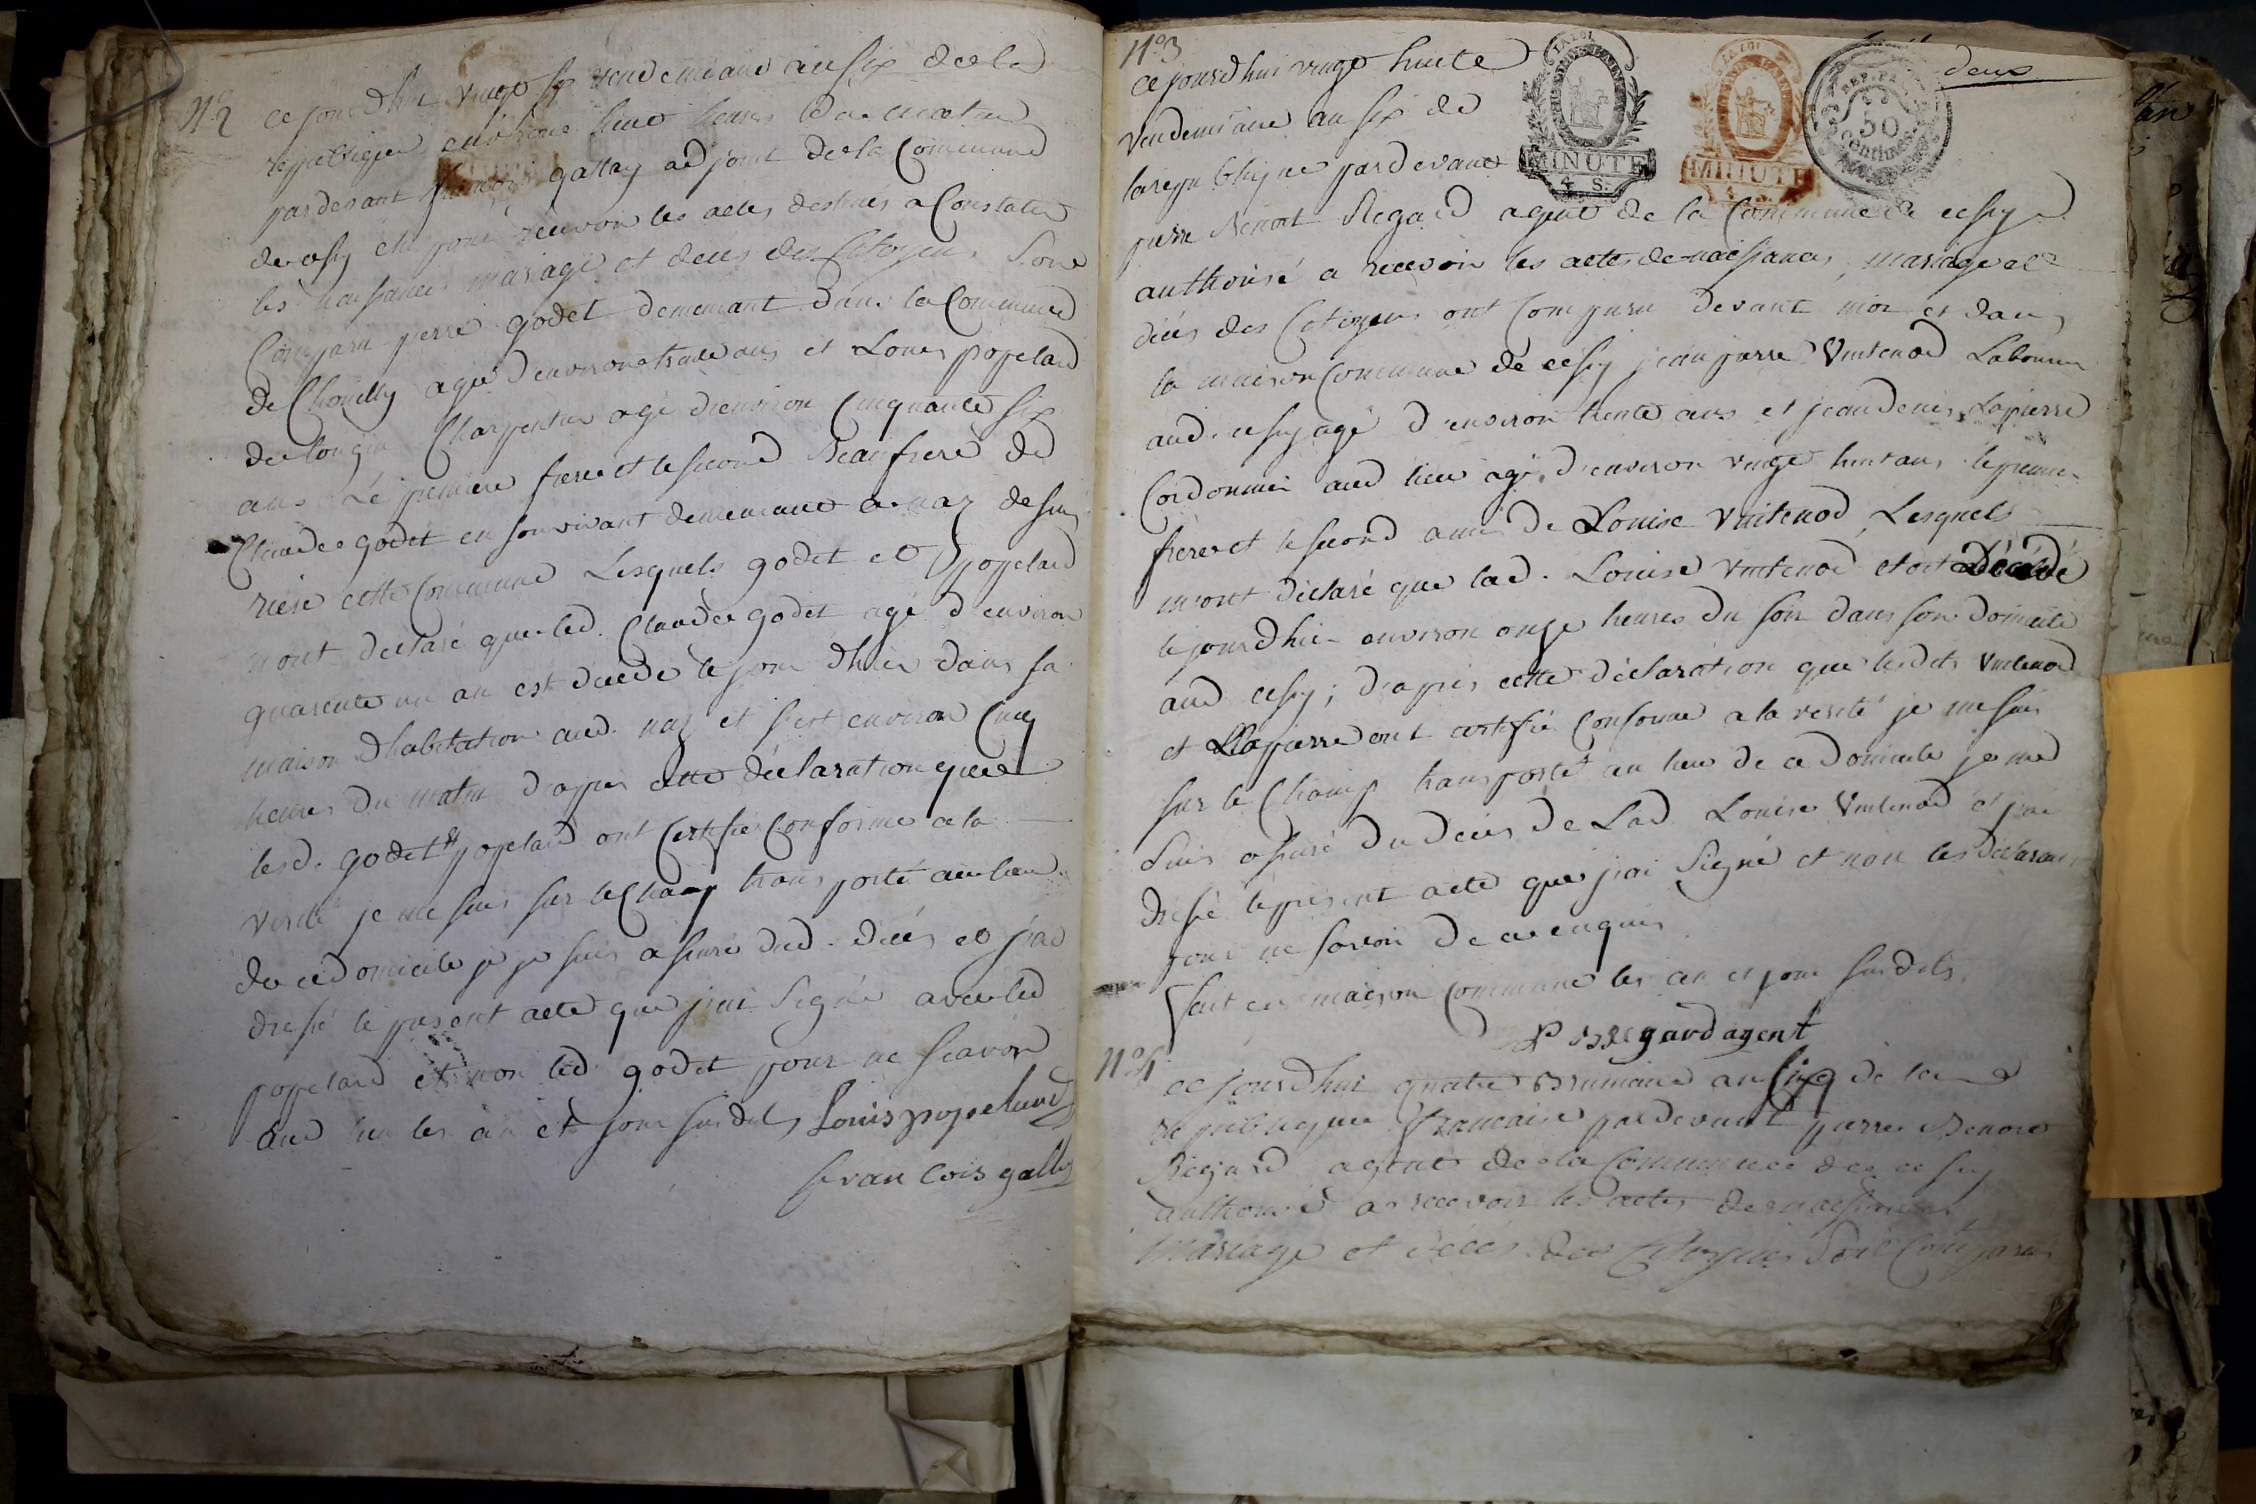 N°2
ce jourdhui vingt six vendemiaire an six de la
republique environ huit heures du matin
pardevant françois gallay adjoint de la Commune
de cessy élu pour recevoir les actes destinés a Constater
les naissances mariage et deces des Citoyens Sont
Comparu pierre godet demeurant dans la Commune
de Chouilly agé d'environ trente ans et Louis popelard
Charpentier agé d'environ Cinquante six
ans Le premiere frere et le second Beaufrere de
Claude godet en son vivant demeurant a naz dessus
riere cette Commune Lesquels godet et popelard
m'ont declaré que led. Claude godet agé d'environ
quarente un an est decedé le jour d'hier dans sa
maison d'habitation aud. naz et s'est environ Cinq
heures du matin d'apres cette déclaration que
lesd. godet et popelard ont Certifié Conforme a la
verité je me suis sur le Champ transporté au lieu
de ce domicile je je suis assuré dud. décés et j'ai
dressé le present acte que j'ai Signé avec led
popelard et non led. godet pour ne scavoir
aud lieu les an et jour susdits Louis popelard
francois gallay
deux
N°3
ce jourdhui vingt huite
vendemiaire an six de
la republique pardevant
pierre Benoit Regard agent de la Commune de cessy
authorisé a recevoir les actes de naissances, mariage et
décés des Citoyens ont Comparu devant moi et dans
la maison Commune de cessy jean pierre Vuitenod Laboureur
aud. cessy agé d'environ trente ans et jean denis Lapierre
Cordonnier aud lieu agé d'environ vingt huit ans le premier
frere et le second ami de Louise Vuitenod, Lesquels
m'ont déclaré que lad. Louise Vuitenod etoit décédé
le jourdhier environ onze heures du soir dans son domicile
aud cessy; d'apres cette déclaration que lesdits Vuitenod
et Lapierre ont certifié Conforme a la verité je me suis
sur le Champ transporté au lieu de ce domicile je me
suis assuré du décés de Lad Louise Vuitenod et j'ai
dressé le present acte que j'ai Signé et non les déclarans
pour ne savoir de ce enquis
fait en maison Commune les an et jour susdits.
regard agent
N°4
ce jourdhui quatre Brumaire an Six de la
republique francaise pardevant pierre Benoit
Regard agent de la Commune de cessy
authorisé a recevoir les actes de naissances
Mariage et décés des Citoyens Sont Comparus
LA LOI
MINUTE
4 S.
LA LOI
MINUTE
REP. FRA
50
Centimes